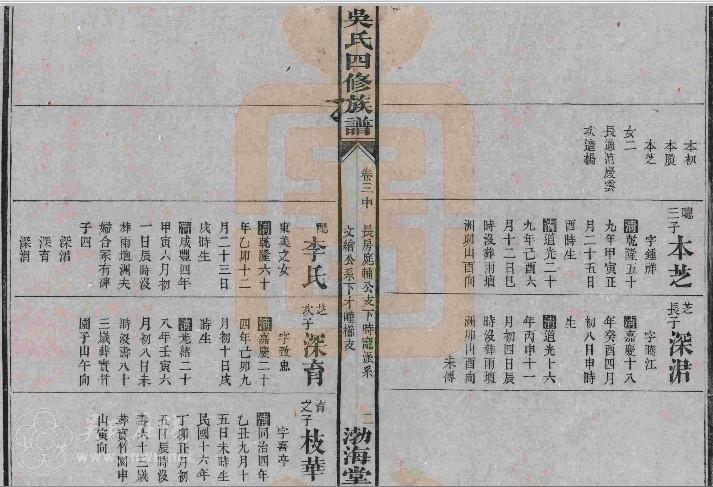 本初
本夏
本芝
女二
長適范慶雲
次適楊
聰三子
本芝
字鍾祥
清乾隆五十
九年甲寅正
月二十五日
酉時生
清道光二十
九年己酉六
月十二日巳
時沒葬雨壇
洲卯山酉向
芝長子
深涒
字晓江
清嘉慶十八
年癸酉四月
初八日申時
生
清道光十六
年丙申十一
月初四日辰
時沒葬雨壇
洲卯山酉向
未傳
吳氏四修族譜
卷三中
長房
輔公支下時寵派系
文繪公系下才
支
二
渤海堂
配
李氏
東美之女
清乾隆六十
年乙卯十二
月二十三日
戌時生
清咸豐四年
甲寅六月初
一日辰時沒
葬雨壇洲夫
婦合冢有碑
子四
深涒
深育
深湑
芝次子
深育
字致忠
清嘉慶二十
四年己卯九
月初十日戌
時生
清光緒二十
八年壬寅六
月初八日未
時沒壽八十
三歲葬寶竹
園子山午向
育之子
枝華
字喜亭
清同治四年
乙丑九月十
五日未時生
民國十六年
丁卯正月初
五日辰時沒
壽六十三歲
葬寶竹園申
山寅向